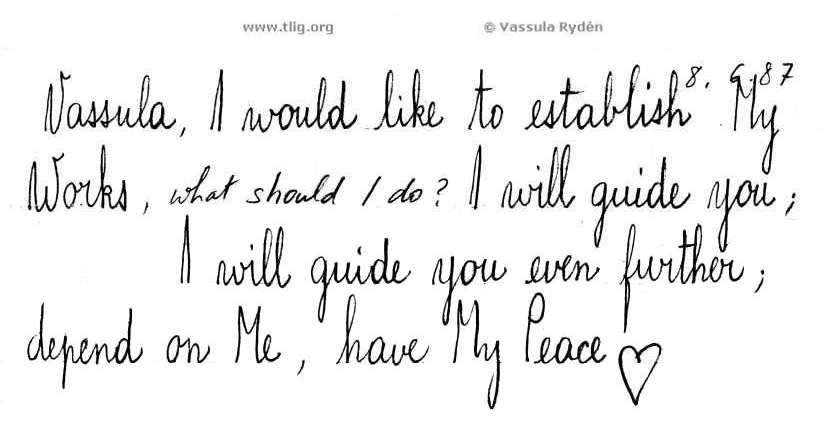 www.tlig.org © Vassula Rydén
8. 6. 87
Vassula, I would like to establish My
Works, what should I do? I will guide you;
I will guide you even further;
depend on Me, have My Peace ♡